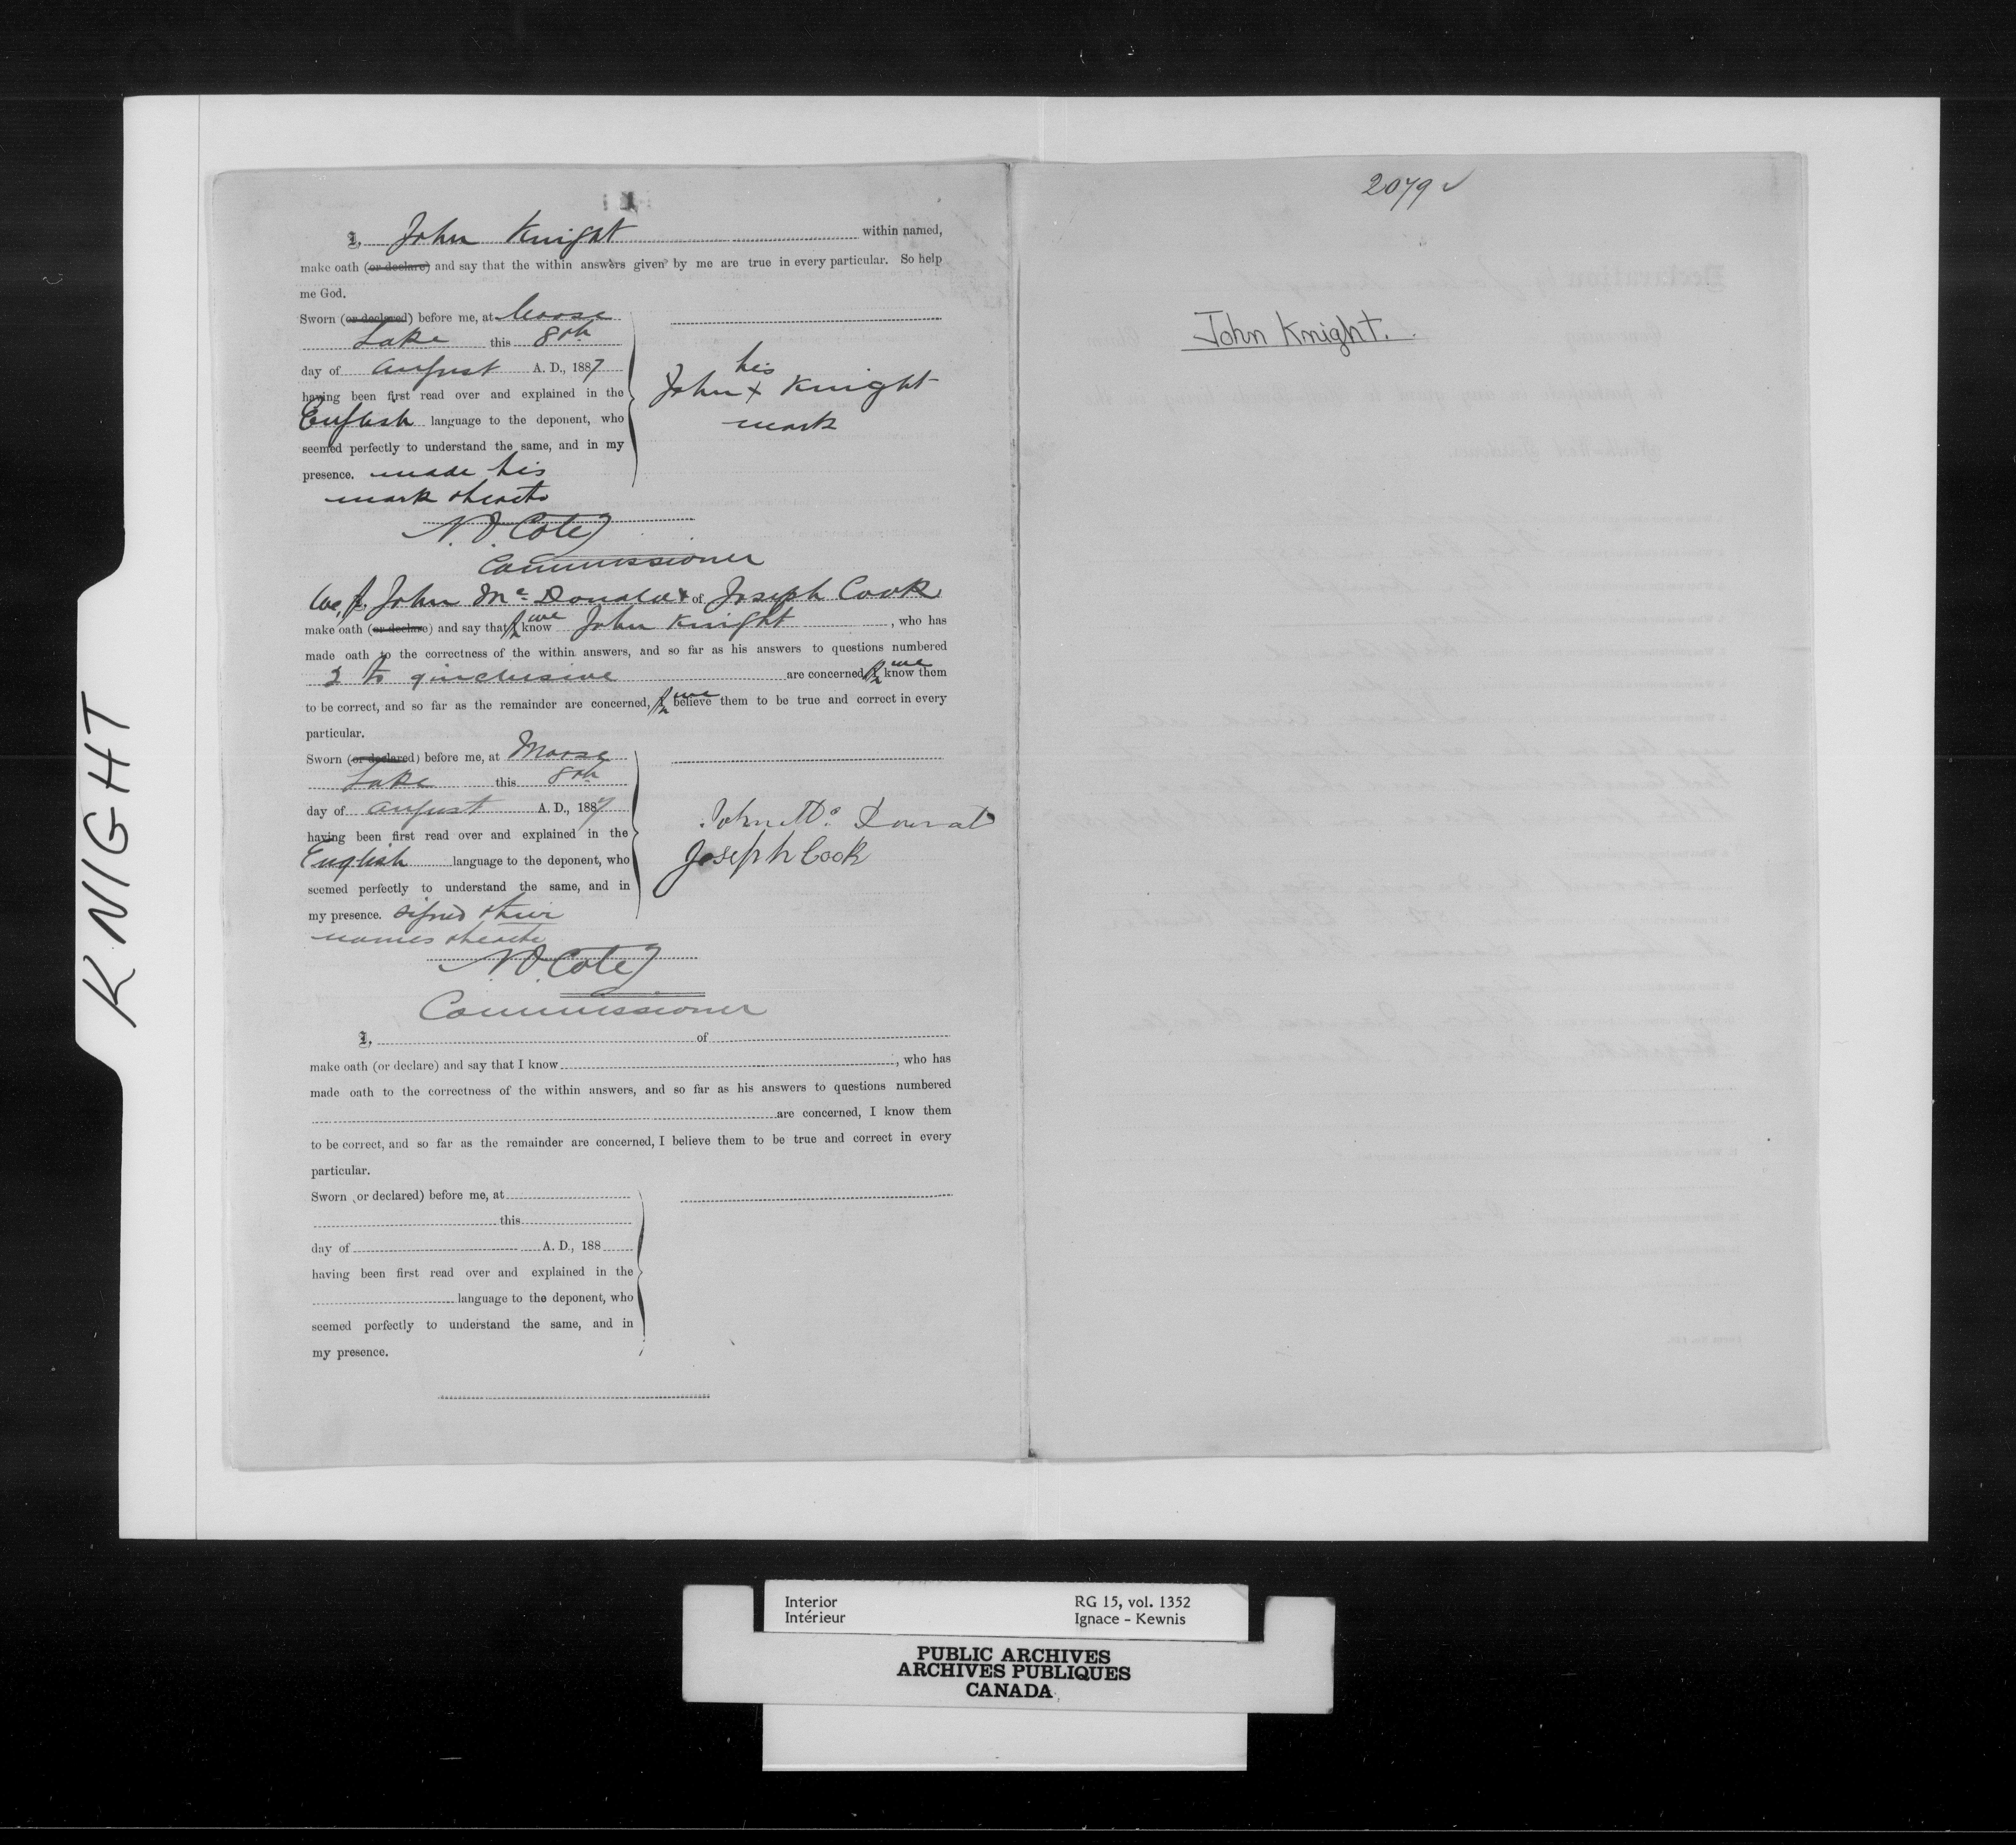 KNIGHT
I, John Knight within named,
make oath (or declare) and say that the within answers given by me are true in every particular. So help
me God.
Sworn (or declared) before me, at Moose
Lake this 8th
day of August A. D., 1887
having been first read over and explained in the
English language to the deponent, who
seemed perfectly to understand the same, and in my
presence. made his
mark thereto
his
John + Knight
mark
N. O. Coté
Commissioner
We, I, John Mc Donald + of Joseph Cook
make oath (or declare) and say that I we know John Knight, who has
made oath to the correctness of the within answers, and so far as his answers to questions numbered
2 to 9 inclusive are concerned, I we know them
to be correct, and so far as the remainder are concerned, I we believe them to be true and correct in every
particular.
Sworn (or declared) before me, at Moose
Lake this 8th
day of August A. D., 1887
having been first read over and explained in the
English language to the deponent, who
seemed perfectly to understand the same, and in
my presence. signed their
names thereto
John Mc Donald
Joseph Cook
N. O. Coté
Commissioner
I, of
make oath (or declare) and say that I know, who has
made oath to the correctness of the within answers, and so far as his answers to questions numbered
are concerned, I know them
to be correct, and so far as the remainder are concerned, I believe them to be true and correct in every
particular.
Sworn (or declared) before me, at
this
day of A. D., 188
having been first read over and explained in the
language to the deponent, who
seemed perfectly to understand the same, and in
my presence.
2079 ✓
John Knight.
Interior RG 15, vol. 1352
Intérieur Ignace - Kewnis
PUBLIC ARCHIVES
ARCHIVES PUBLIQUES
CANADA